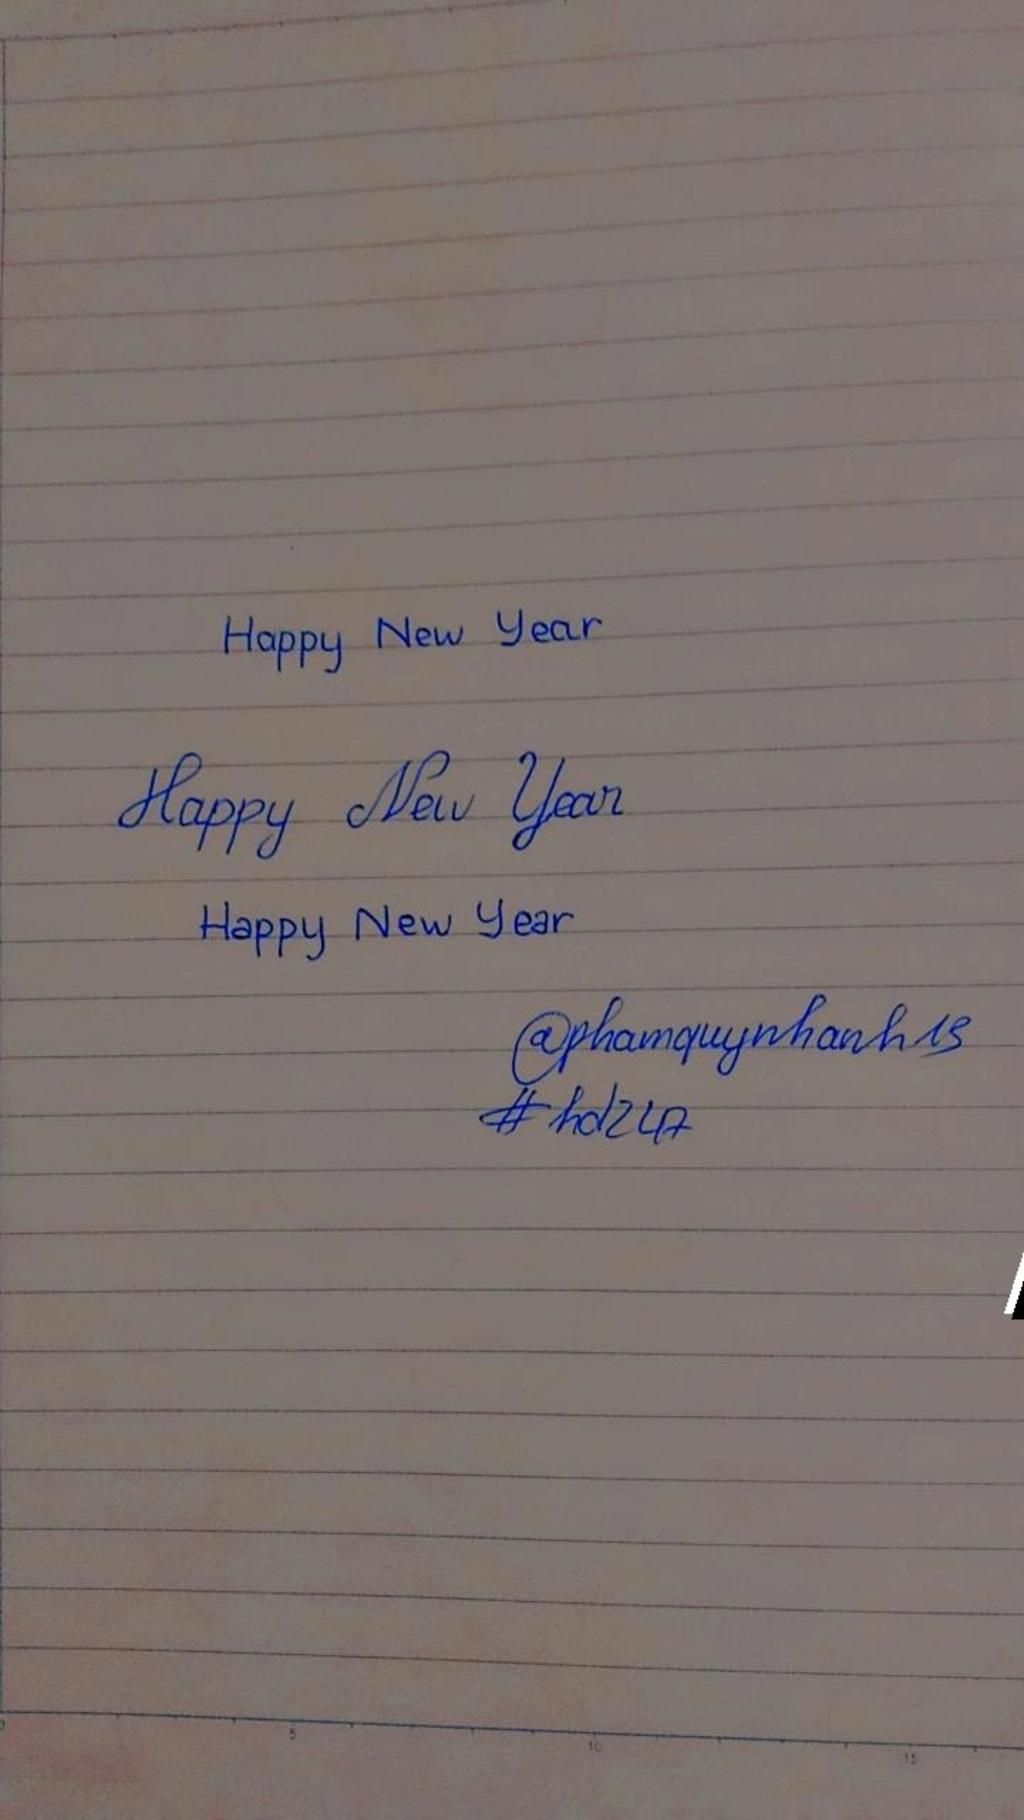 Happy New Year
Happy New Year
Happy New Year
@phamquynhanh19
#hd247
0 5 10 15